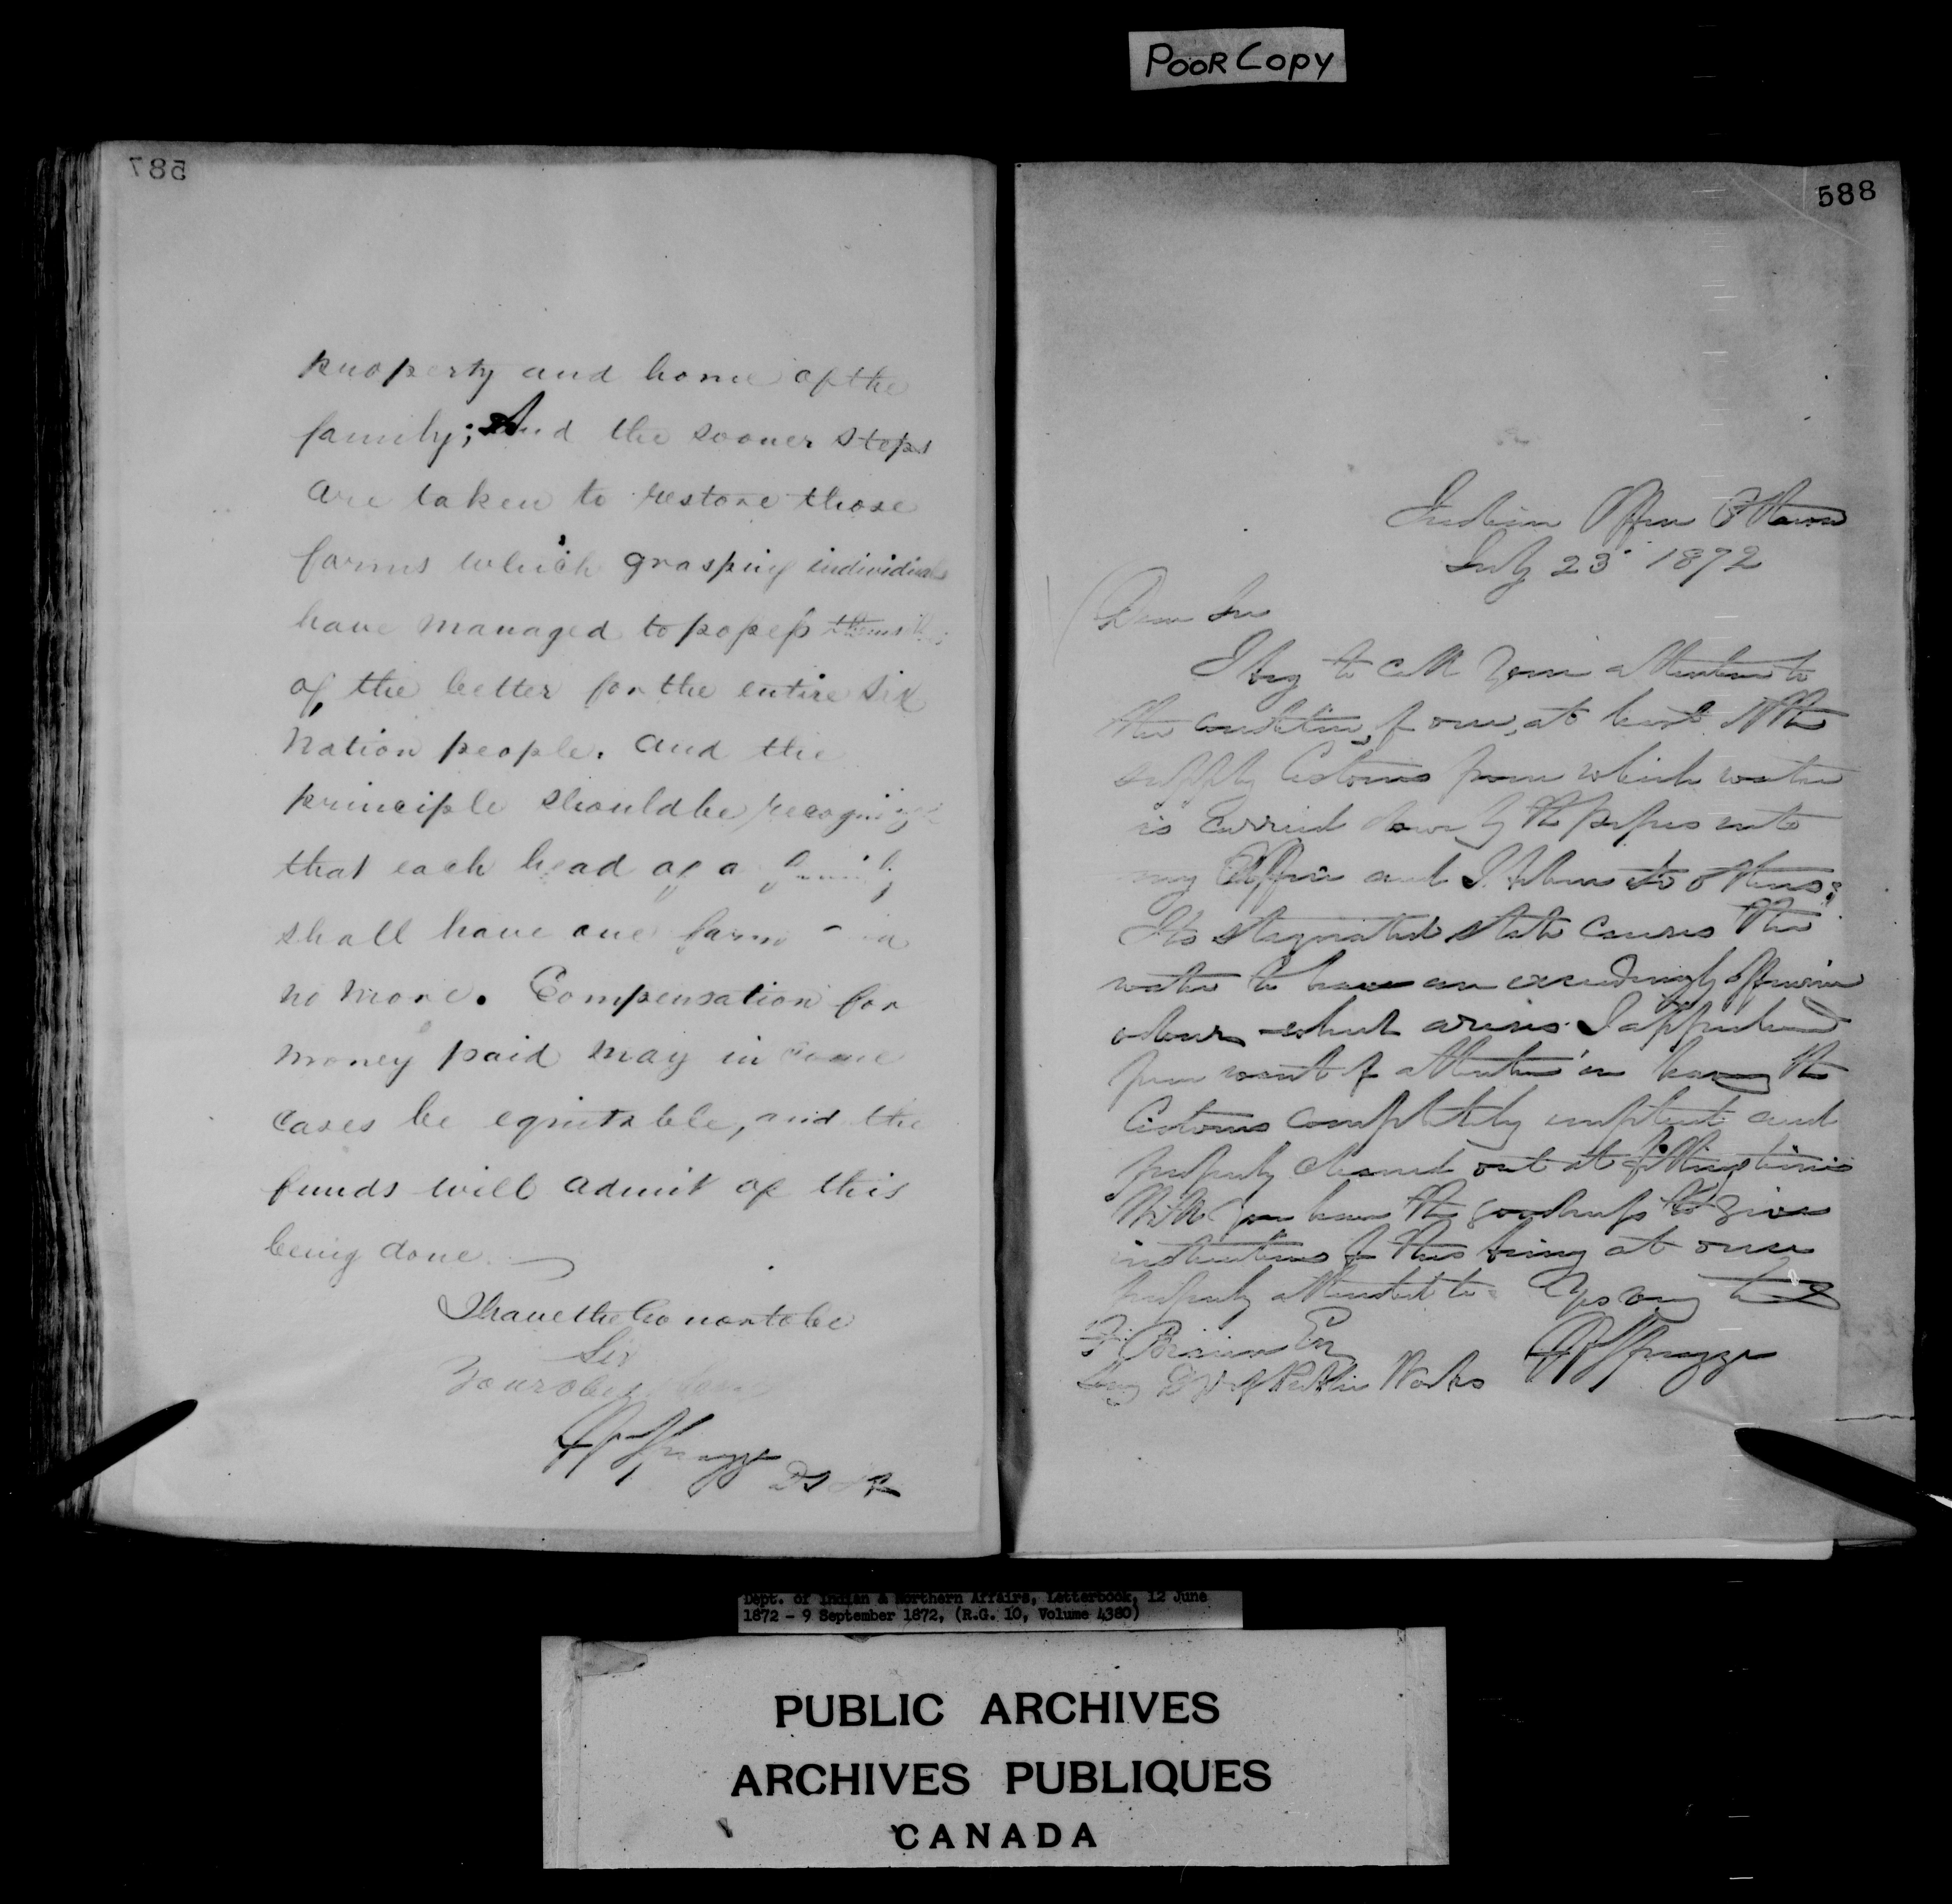 POOR COPY
587
property and home of the
family; And the sooner steps
are taken to restore those
farms which grasping individuals
have managed to possess themselves
of, the better for the entire Six
Nation people. and the
principle should be recognized
that each head of a family
shall have one farm and
no more. Compensation for
money paid may in some
cases be equitable, and the
funds will admit of this
being done.
I have the honor to be
Sir
Your obed
588
Indian Office Ottawa
July 23 1872
Dear Sir
I beg to call your attention to
the condition of one, at least of the
supply Cisterns from which water
is carried down by the pipes into
my Office and I believe to others;
Its stagnated state causes the
water to have an exceedingly offensive
odour which arises I apprehend
from want of attention in having the
Cisterns completely emptied and
properly cleaned out at fitting times
Will you have the goodness to give
instructions of this being at once
properly attended to. Yrs very truly
F. Braun Esq
Secy Dept of Public Works
Dept. of Indian & Northern Affairs, Letterbook, 12 June
1872 - 9 September 1872, (R.G. 10, Volume 4380)
PUBLIC ARCHIVES
ARCHIVES PUBLIQUES
CANADA